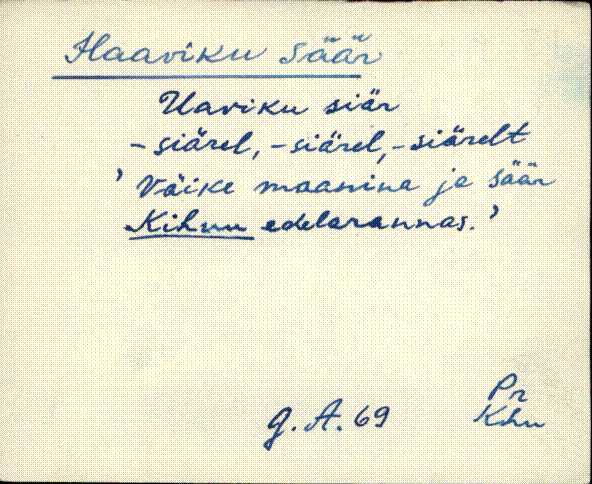 Haaviku säär
Uaviku siär
-siärel, -siärel, -siärelt
' Väike maanina ja säär
Kihnu edelarannas.'
Pr
g. A. 69 Khn